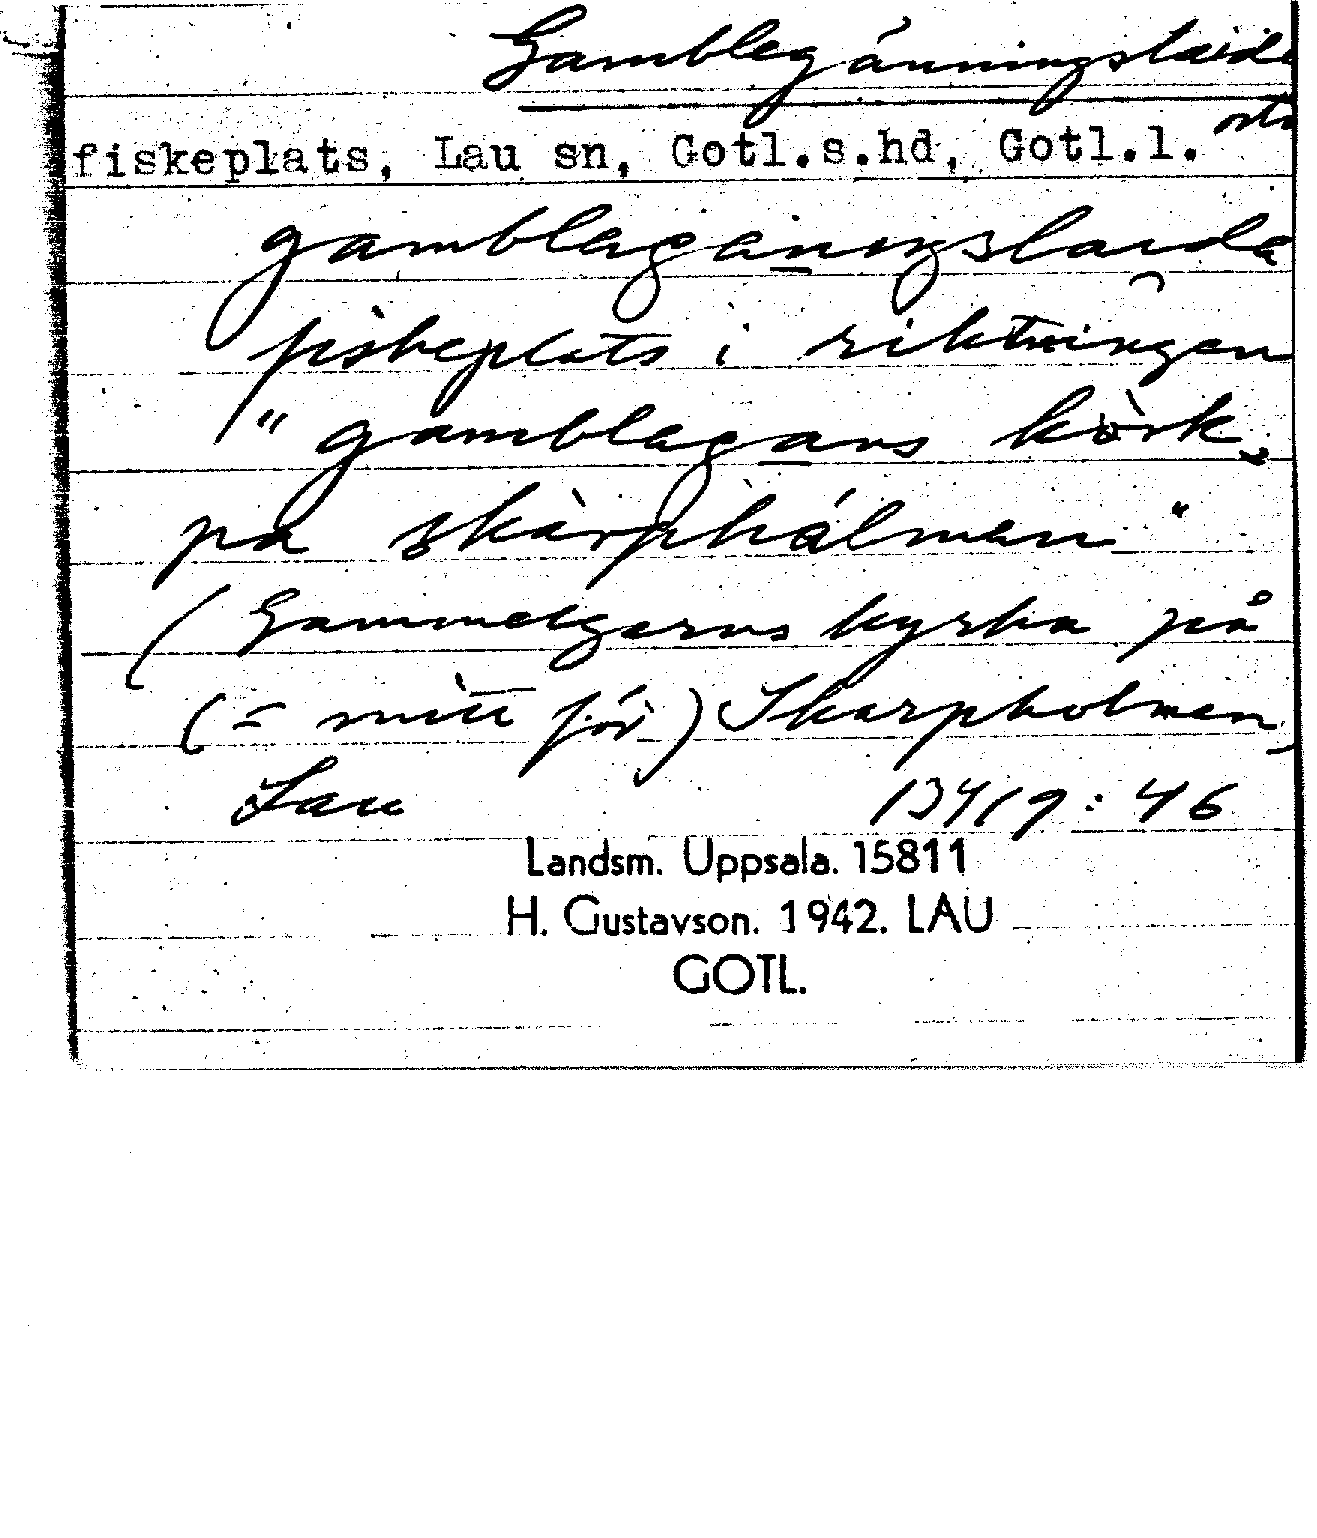 Gamblegänningslaide
osto
fiskeplats, Lau sn, Gotl.s.hd, Gotl.l.
gamblaganıŋslaıda
fiskeplats i riktningen
"gamblagans körk
på skarphálmen"
(Gammelgarns kyrka på
(= mitt för) Skarpholmen,
Lau 13419:46
Landsm. Uppsala. 15811
H. Gustavson. 1942. LAU
GOTL.